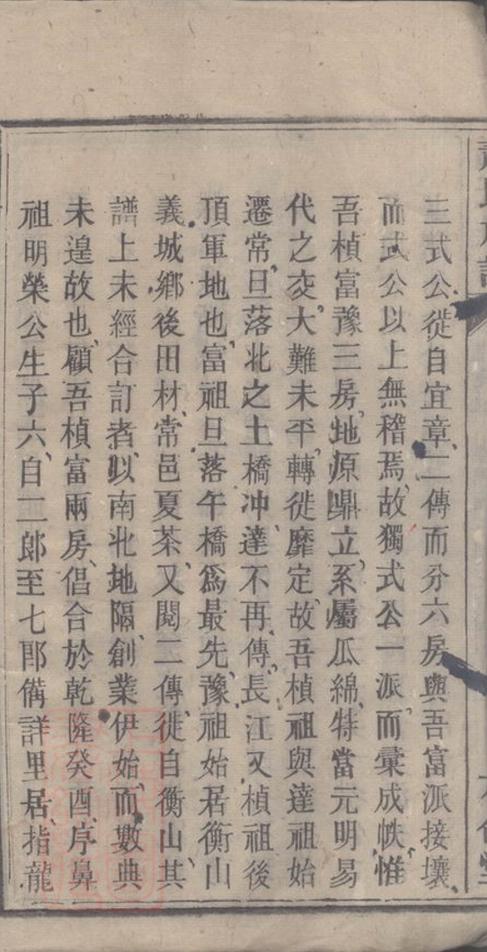 三式公徙自宜章二傳而分六房與吾富派接壤
而式公以上無稽焉故獨式公一派而彙成帙惟
吾楨富豫三房地原鼎立系屬瓜綿特當元明易
代之变大難未平轉徙靡定故吾楨祖與達祖始
遷常旦落北之土橋冲達不再傳長江又楨祖後
頂軍地也富祖旦落午橋爲最先豫祖始居衡山
義城鄉後田材常邑夏茶又閱二傳徙自衡山其
譜上未經合訂者以南北地隔創業伊始而數典
未遑故也顧吾楨富兩房倡合於乾隆癸酉序鼻
祖明榮公生子六自二郎至七郎備詳里居指龍